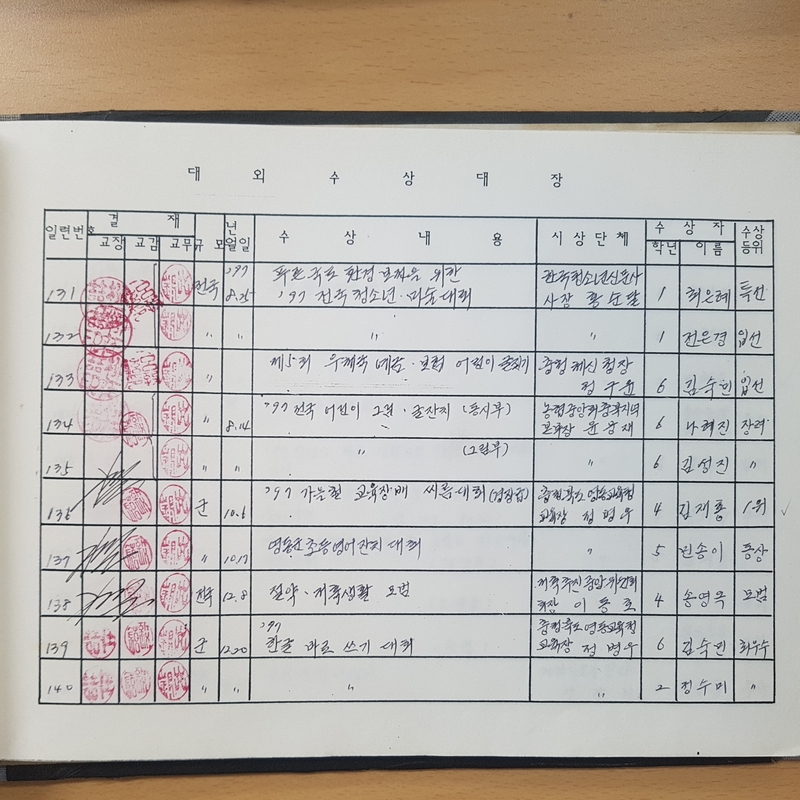 대 외 수 상 대 장
일련번호 결 재 규모 년월일 수 상 내 용 시상단체 수 상 자 수상등위
교장 교감 교무 학년 이름
131 전국 '97 8.25 푸른 국토 환경 보전을 위한 한국청소년신문사
'97 전국 청소년·미술대회 사장 황순달 1 최은혜 특선
132 〃 〃 〃 1 전은경 입선
133 〃 제5회 우체국 예금·보험 어린이 글짓기 충청체신청장
6 김숙민 입선
134 〃 8.14 '97 전국 어린이 그림·글잔치 (동시부) 농협중앙회충북지역
본부장 윤 재 6 나혜진 장려
135 〃 〃 〃 (그림부) 6 김성진 〃
136 군 10.6 '97 가을철 교육장배 씨름대회 충청북도영동교육청
교육장 정병우 4 김재홍 1위
137 〃 10.17 영동군초등영어잔치 대회 〃 5 민송이 동상
138 전국 12.8 절약·저축생활 모범 저축추진중앙위원회
회장 이동호 4 송영욱 모범
139 군 12.20 '97 한글 바로 쓰기 대회 충청북도영동교육청
교육장 정병우 6 김숙민 최우수
140 〃 〃 〃 〃 2 정수미 〃